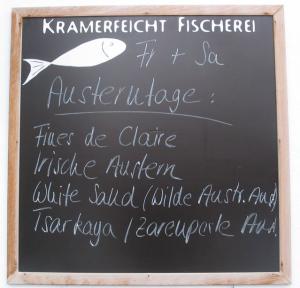 KRAMERFEICHT FISCHEREI
Fr + Sa
Austerntage :
Fines de Claire
Irische Austern
White Sand (Wilde Austr. Aus)
Tsarkaya / Zarenperle Aus.